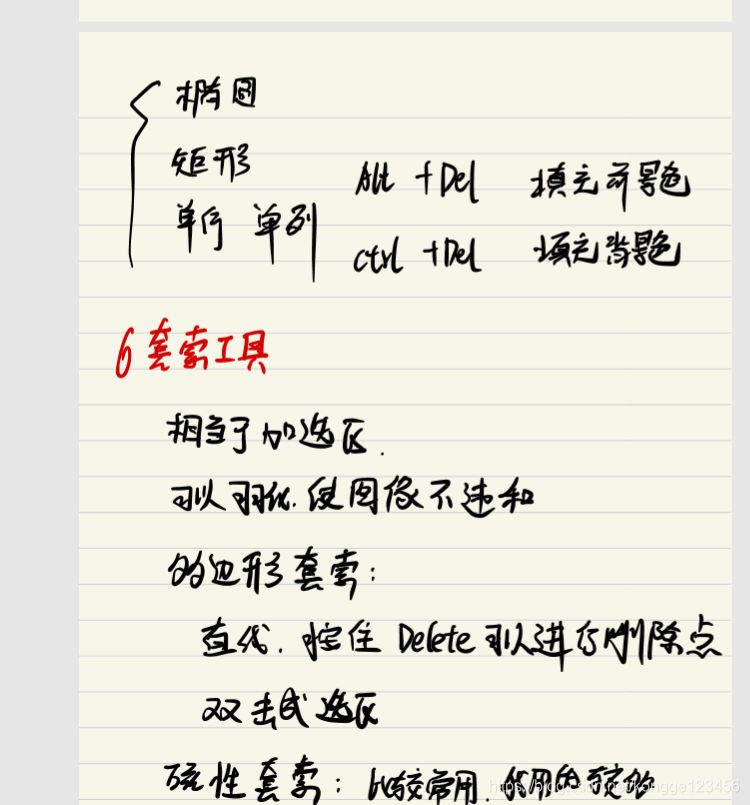 椭圆
矩形
Alt +Del 填充前景色
单行 单列
ctrl +Del 填充背景色
6 套索工具
相当于加选区.
可以羽化.使图像不违和
多边形套索:
直线.按住Delete可以进行删除点
双击成选区
磁性套索:比较常用.
https://blog.csdn.net/kongga123456